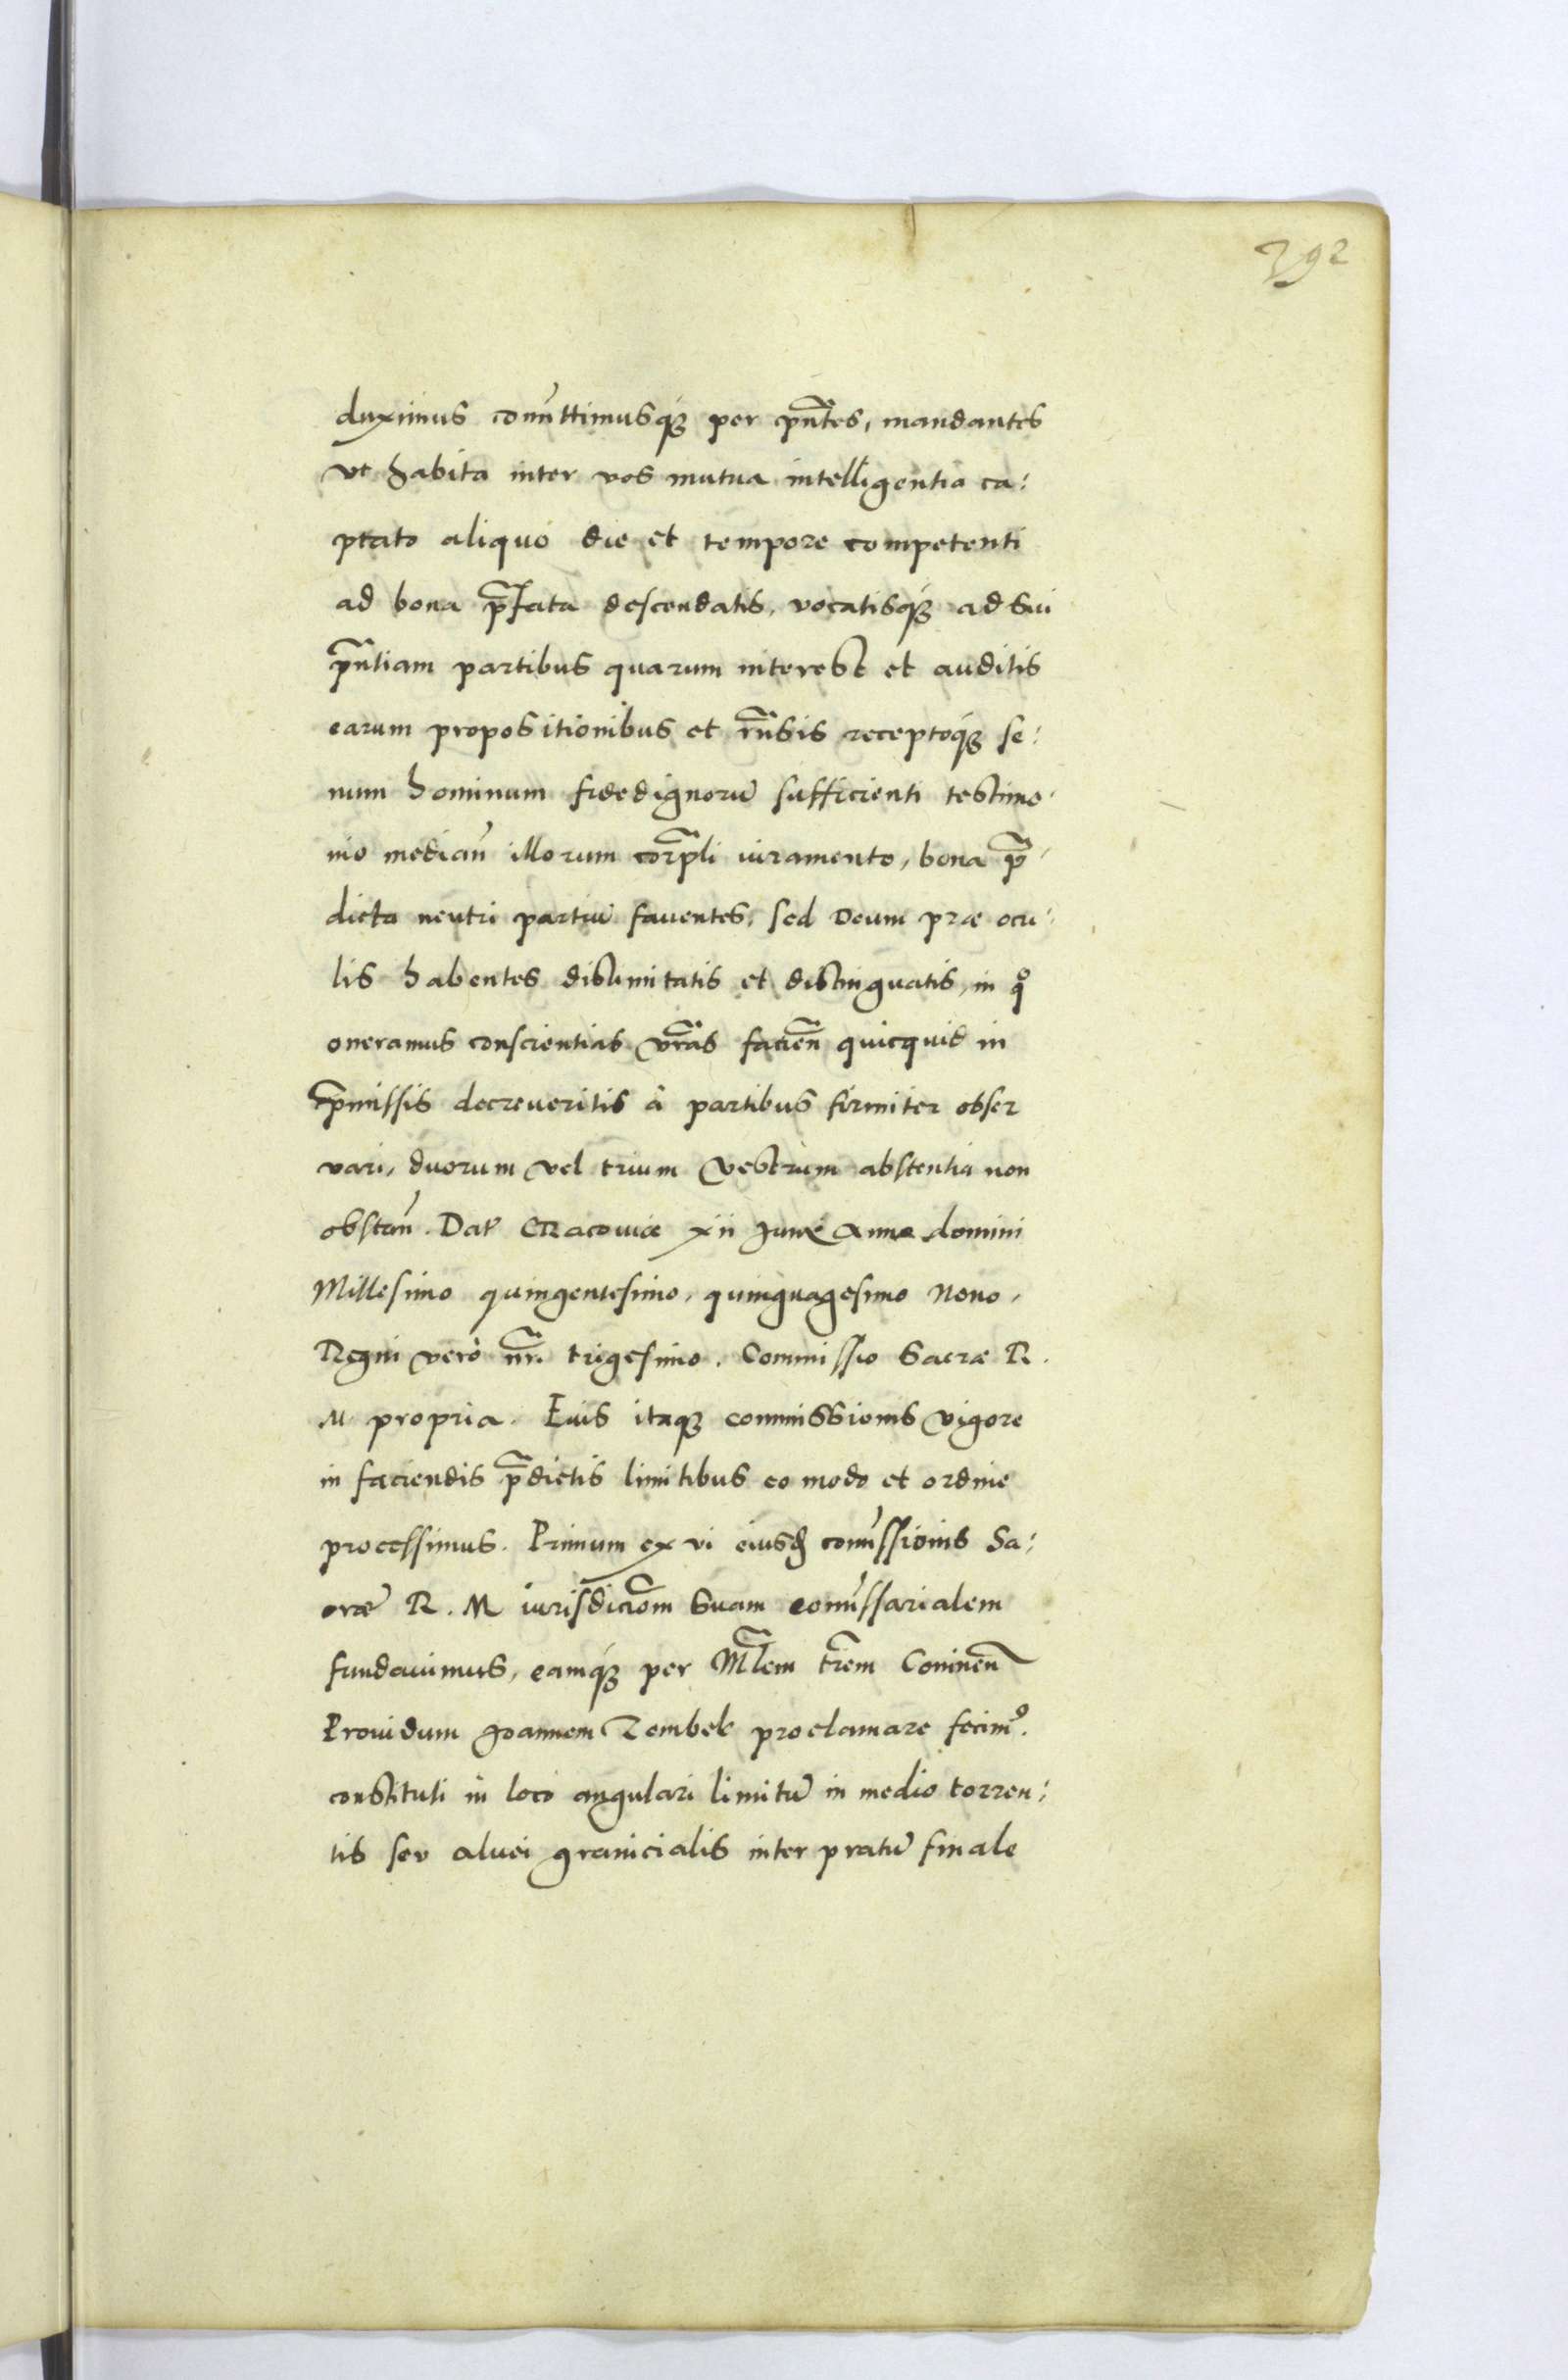 392
duximus com̃ittimusq́ꝫ per pñtes, mandantes
vt habita inter vos mutua intelligentia ca:
ptato aliquo die et tempore competenti
ad bona p̃fata descendatis, vocatisq́ꝫ ad sui
pñtiam partibus quarum interest et auditis
earum propositionibus et rñsis receptoq́ꝫ se:
num hominum fidedignorũ sufficienti testimo:
nio median̄ illorum corp̃li iuramento, bona p̃:
dicta neutri partiũ fauentes, sed Deum præ ocu:
lis habentes dislimitatis et distinguatis, in qº
oneramus conscientias vr̃as facień quicquid in
p̃missis decreueritis â partibus firmiter obser
vari, duorum vel trium vestrum abstentia non
obstan̄. Dat̃ Cracouiæ xii Junÿ Anno domini
Millesimo quingentesimo, quinquagesimo Nono,
Regni verò nr̃i trigesimo. Commissio Sacræ R.
M propria. Euis itaqꝫ commissionis vigore
in faciendis p̃dictis limitibus eo modo et ordine
processimus. Primum ex vi eiusdē com̃issionis Sa:
cræ R. M iurisdictiõm suam com̃issarialem
fundauimus, eamq́ꝫ per M̃lem tr̃em Coninen̄
Prouidum Joannem Zembek proclamare fecimº.
constituti in loco angulari limitũ in medio torren:
tis seu aluei granicialis inter pratũ finale